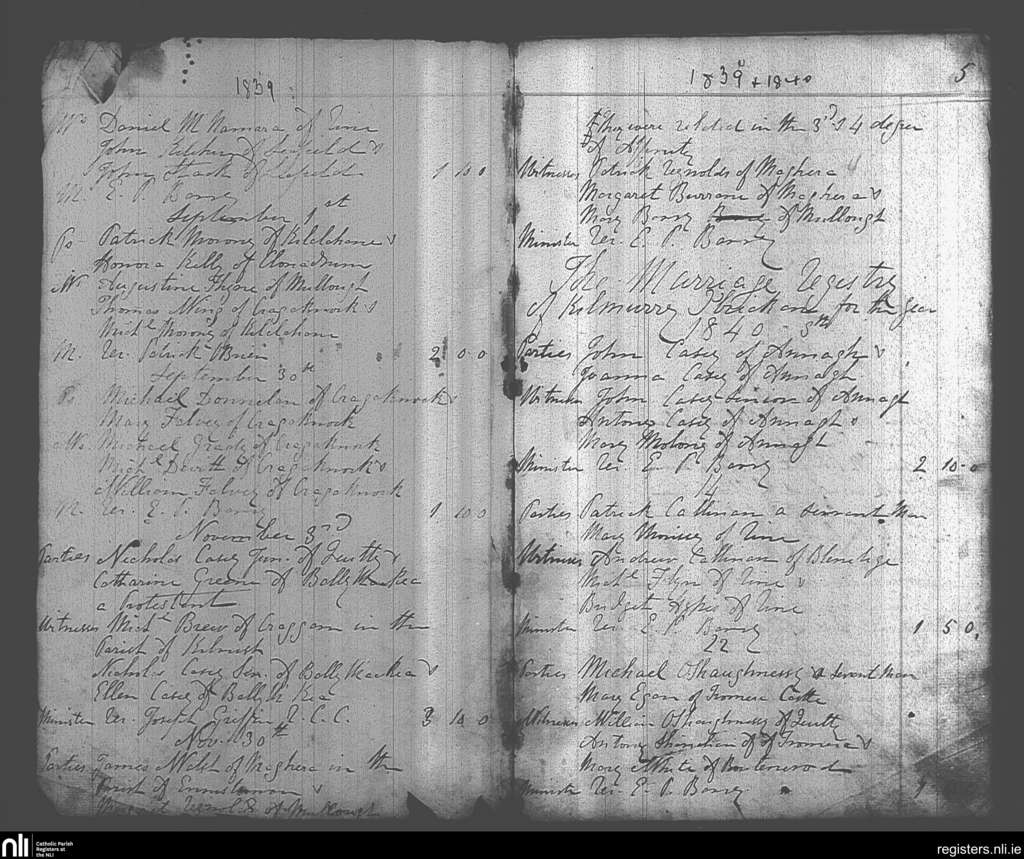 1839
Ws Daniel McNamara of Tine
John Kelleher of &
John Stack of 1 10 0
M. E. P. Barry
September 1st
Ps Patrick Morony of Kilclehane &
Honora Kelly of Clonadrum
Ws Augustine of Mullough
Thomas King of Cragaknock &
Michl Morony of Kilclehane
M. Rev. Patrick OBrien 2 0 0
September 30th
Ps Michael Donnelan of Cragaknock &
Mary Falvey of Cragaknock
Ws Michael Grady of Cragaknock
Michl of Cragaknock &
William Falvey of Cragaknock
M. Rev. E. P. Barry 1 10 0
November 3rd
Parties Nicholas Casey Jun. of &
Catharine Greene of BallyMcKea
a Protestant
Witnesses Michl Brew of Craggam in the
Parish of Kilrush
Nicholas Casey Sen. of BallyMackea &
Ellen Casey of BallyMcKea
Minister Rev. Joseph Griffin C. C. 3 10 0
Nov. 30th
Parties James Walsh of Maghera in the
Parish of &
Margaret Reynolds of Mullough
1839 + 1840
5
They were related in the 3rd & 4 degree
of Affinity
Witnesses Patrick Reynolds of Maghera
Margaret Burrane of Maghera &
Mary Barry of Mullough
Minister Rev. E. P. Barry
The Marriage Registry
of Kilmurry Ibrickane for the year
1840 8th
Parties John Casey of Annagh &
Joanna Casey of Annagh
Witnesses John Casey Senior of Annagh
Antony Casey of Annagh &
Mary Molony of Annagh
Minister Rev. E. P. Barry 2 10-0
11
Parties Patrick Callinan a servant Man
Mary Morrisey of Tine
Witnesses Andrew Callinan of
Michl Flyn of Tine &
Bridget of Tine
Minister Rev. E. P. Barry 1 5 0
22
Parties Michael OShaughnessy a servant Man
Mary Egan of Tromra Castle
Witnesses William OShaughnessy of
Antony of Tromera &
Mary White of
Minister Rev. E. P. Barry
nli Catholic Parish
Registers at
the NLI
registers.nli.ie